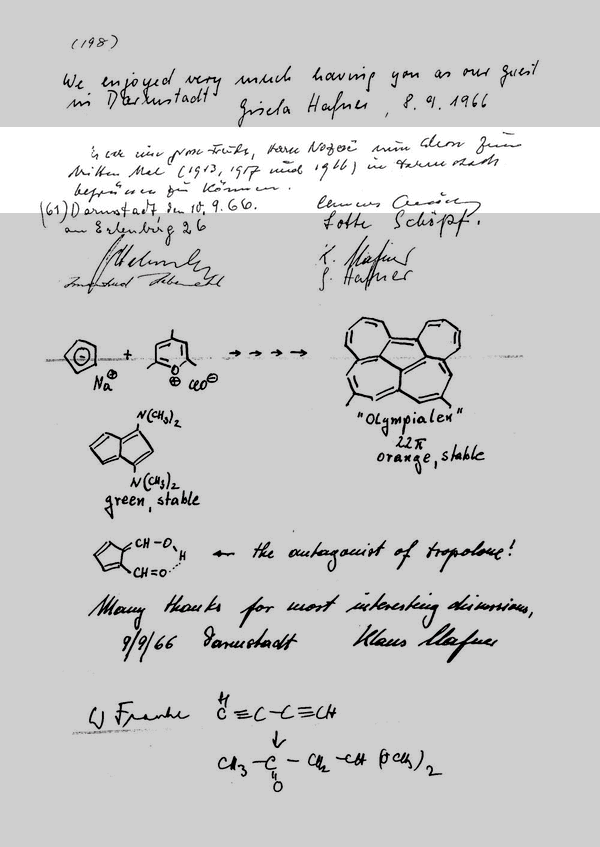 (198)
We enjoyed very much having you as our guest
in Darmstadt Gisela Hafner, 8.9.1966
Es war eine grosse Freude, Herrn Nozoe nun schon zum
dritten Mal (1953, 1957 und 1966) in Darmstadt
begrüssen zu können.
(61) Darmstadt, den 10.9.66.
am Erlenberg 26
Lotte Schöpf.
K. Hafner
G. Hafner
+ → → → →
Na⊕ O⊕ ClO⊖
"Olympialen"
22π
orange, stable
N(CH3)2
N(CH3)2
green, stable
CH–O H
CH=O
← the antagonist of tropolone!
Many thanks for most interesting discussions,
9/9/66 Darmstadt Klaus Hafner
W Franke
H
C≡C–C≡CH
↓
CH3–C–CH2–CH(OCH3)2
O